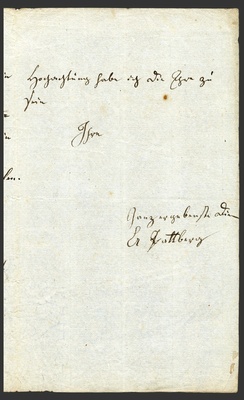 Hochachtung habe ich die Ehre zu
sein
Ihre
ganz ergebenste
Pattberg